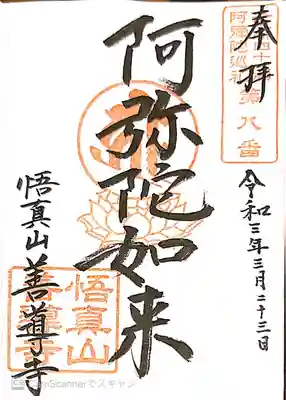 奉拝
第八番
令和三年三月二十三日
阿弥陀如来
悟真山善導寺
悟真山
善導寺
CamScannerでスキャン